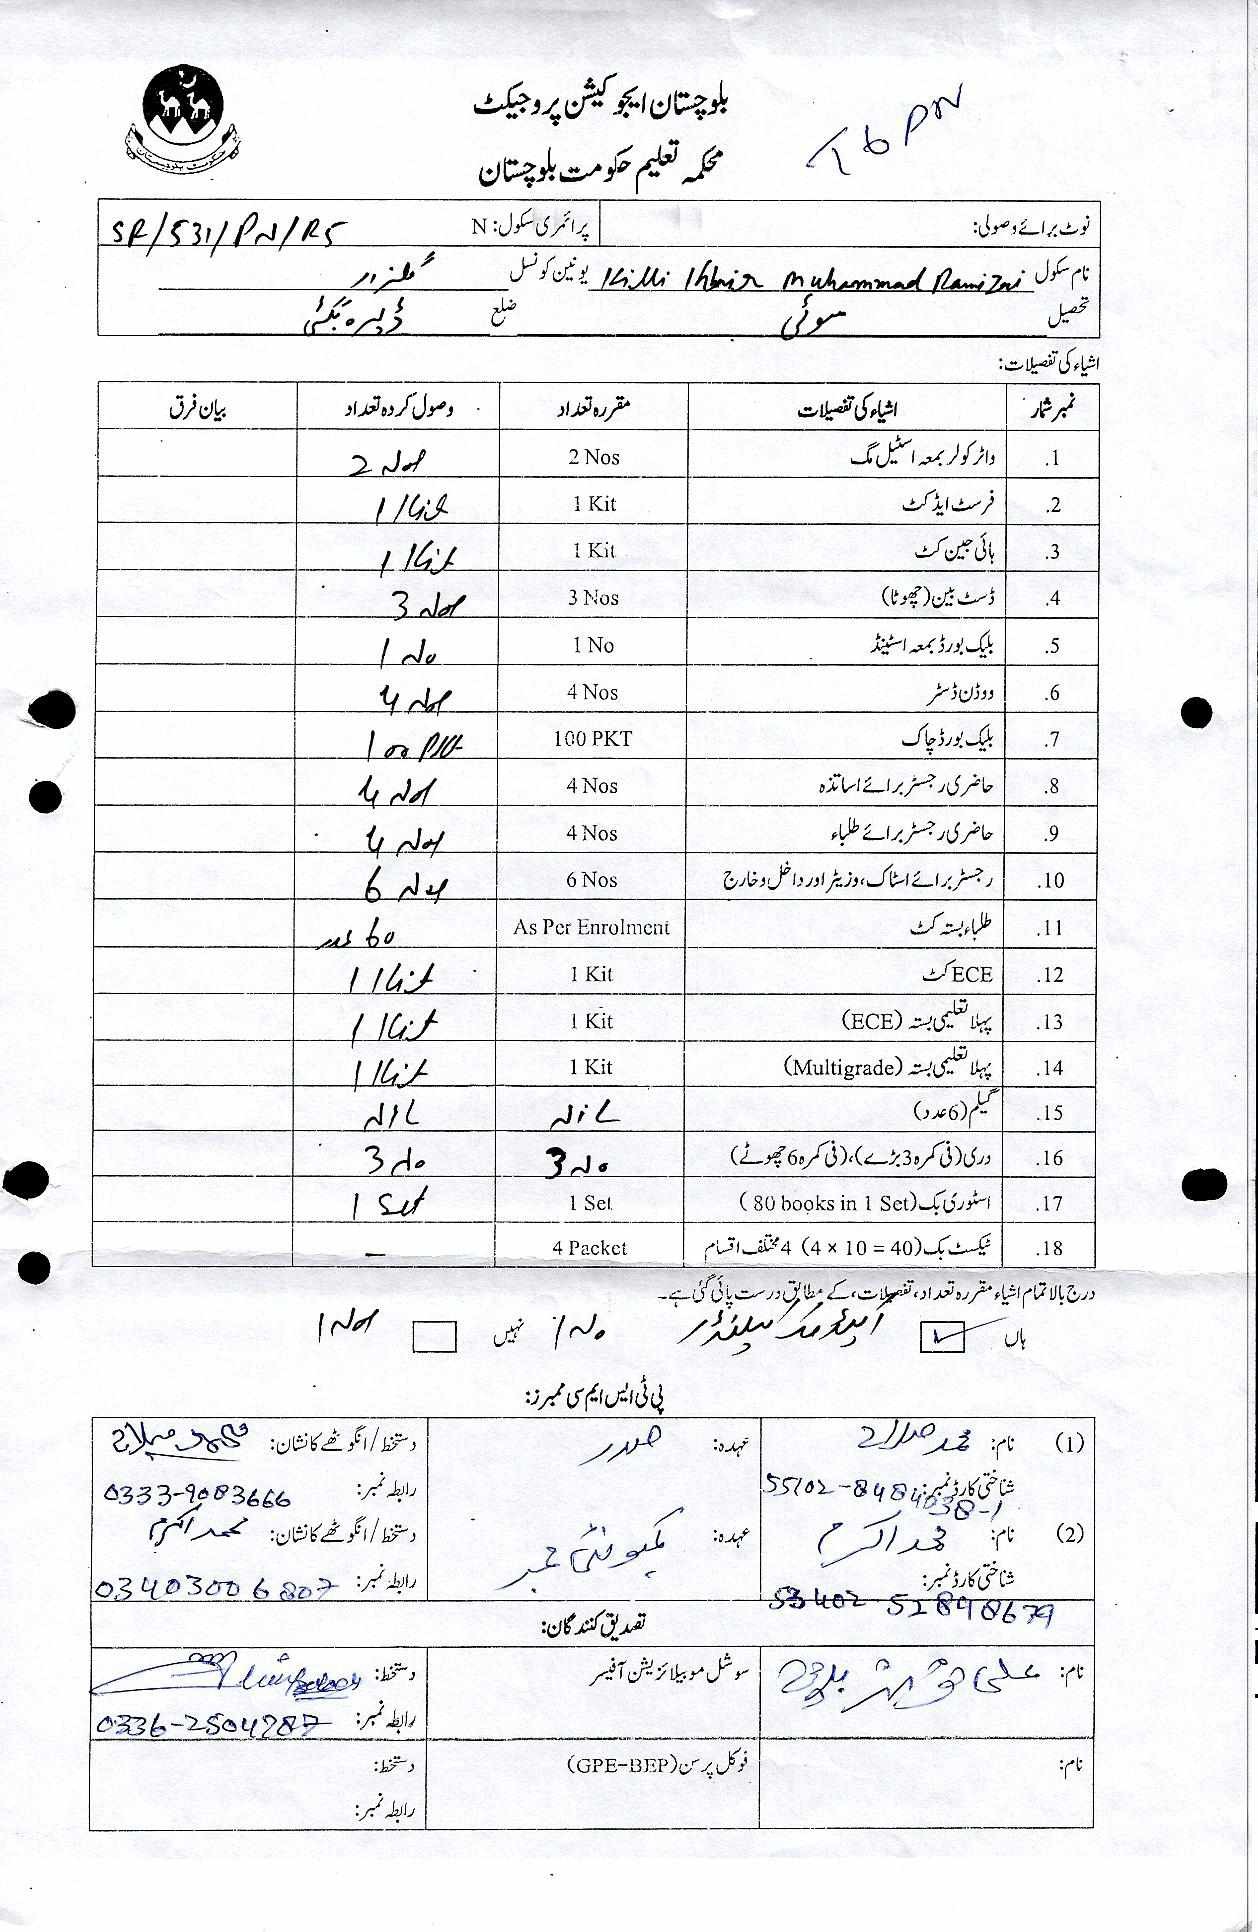 بلوچستان ایجوکیشن پروجیکٹ
محکمہ تعلیم حکومت بلوچستان
حکومت بلوچستان
نوٹ برائے وصولی: پرائمری سکول: N SR/531/PN/RS
نام سکول Killi Khair Muhammad Ramizai یونین کونسل گلزار
تحصیل سوئی ضلع ڈیرہ بگٹی
اشیاء کی تفصیلات:
نمبر شمار اشیاء کی تفصیلات مقررہ تعداد وصول کردہ تعداد بیان فرق
1. واٹر کولر بمعہ اسٹیل مگ 2 Nos 2 Nos
2. فرسٹ ایڈ کٹ 1 Kit 1 Kit
3. ہائی جین کٹ 1 Kit 1 Kit
4. ڈسٹ بین (چھوٹا) 3 Nos 3 Nos
5. بلیک بورڈ بمعہ اسٹینڈ 1 No 1 No
6. ووڈن ڈسٹر 4 Nos 4 Nos
7. بلیک بورڈ چاک 100 PKT 100 PKT
8. حاضری رجسٹر برائے اساتذہ 4 Nos 4 Nos
9. حاضری رجسٹر برائے طلباء 4 Nos 4 Nos
10. رجسٹر برائے اسٹاک، وزیٹر اور داخل و خارج 6 Nos 6 Nos
11. طلباء بستہ کٹ As Per Enrolment 60 عدد
12. ECE کٹ 1 Kit 1 Kit
13. پہلا تعلیمی بستہ (ECE) 1 Kit 1 Kit
14. پہلا تعلیمی بستہ (Multigrade) 1 Kit 1 Kit
15. گیلم (6 عدد) NIL NIL
16. دری (فی کمرہ 3 بڑے)، (فی کمرہ 6 چھوٹے) 3 No 3 No
17. اسٹوری بک (80 books in 1 Set) 1 Set 1 Set
18. ٹیکسٹ بک (4 × 10 = 40) 4 مختلف اقسام 4 Packet –
درج بالا تمام اشیاء مقررہ تعداد، تفصیلات، کے مطابق درست پائی گئی ہے۔
ہاں 1 No نہیں 1 Nos
پی ٹی ایس ایم سی ممبرز:
(1) نام: محمد میلاد عہدہ: صدر دستخط/انگوٹھے کا نشان: محمد میلاد
شناختی کارڈ نمبر: 55102-8484038-1 رابطہ نمبر: 0333-9083666
(2) نام: محمد اکرم عہدہ: کمیونٹی ممبر دستخط/انگوٹھے کا نشان: محمد اکرم
شناختی کارڈ نمبر: 53402 52898679 رابطہ نمبر: 03403006807
تصدیق کنندگان:
نام: علی بلوچ سوشل موبیلائزیشن آفیسر دستخط:
رابطہ نمبر: 0336-2504787
نام: فوکل پرسن (GPE-BEP) دستخط:
رابطہ نمبر: